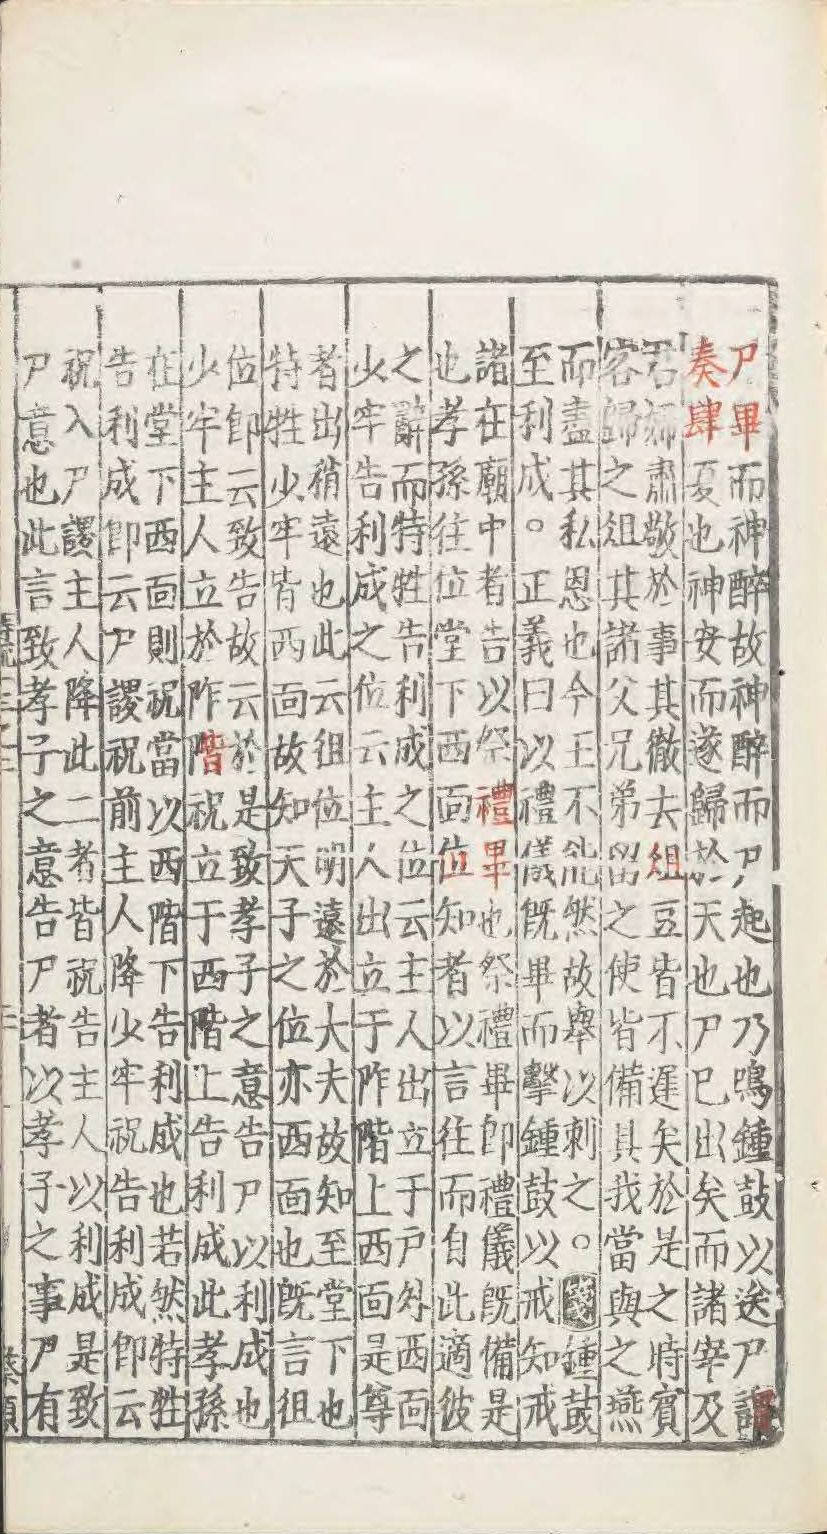 尸畢而神醉故神醉而尸起也乃鳴鍾鼓以送尸謂
奏肆夏也神安而遂歸於天也尸巳出矣而諸宰及
君婦肅敬於事其徹去俎豆皆不遲矣於是之時賓
客歸之俎其諸父兄弟留之使皆備具我當與之燕
而盡其私恩也今王不能然故舉以刺之。箋鍾鼓
至利成。正義曰以禮儀既畢而擊鍾鼓以戒知戒
諸在廟中者告以祭禮畢也祭禮畢即禮儀既備是
也孝孫往位堂下西面位知者以言往而自此適彼
之辭而特牲告利成之位云主人出立于戶外西面
少牢告利成之位云主人出立于阼階上西面是尊
者出稍遠也此云徂位明遠於大夫故知至堂下也
特牲少牢皆西面故知天子之位亦西面也既言徂
位即云致告故云於是致孝子之意告尸以利成也
少牢主人立於阼階祝立于西階上告利成此孝孫
在堂下西面則祝當以西階下告利成也若然特牲
告利成即云尸謖祝前主人降少牢祝告利成即云
祝入尸謖主人降此二者皆祝告主人以利成是致
尸意也此言致孝子之意告尸者以孝子之事尸有